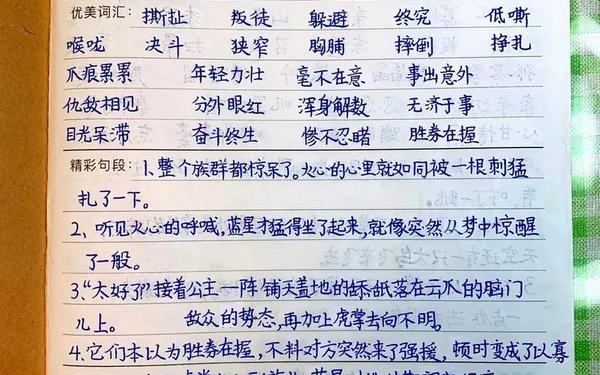 优美词汇： 撕扯 叛徒 躲避 终究 低嘶
喉咙 决斗 狭窄 胸脯 摔倒 挣扎
爪痕累累 年轻力壮 毫不在意 事出意外
仇敌相见 分外眼红 浑身解数 无济于事
目光呆滞 奋斗终生 惨不忍睹 胜券在握
精彩句段： 1、整个族群都惊呆了。火心的心里就如同被一根刺猛
扎了一下。
2、听见火心的呼喊，蓝星才猛得坐了起来，就像突然从梦中惊醒
了一般。
3、“太好了”接着公主一阵铺天盖地的舔舐落在云爪的脑门
儿上。 敌众的势态，再加上虎掌去向不明。
4、它们本以为胜券在握，不料对方突然来了强援，顿时变成了以寡